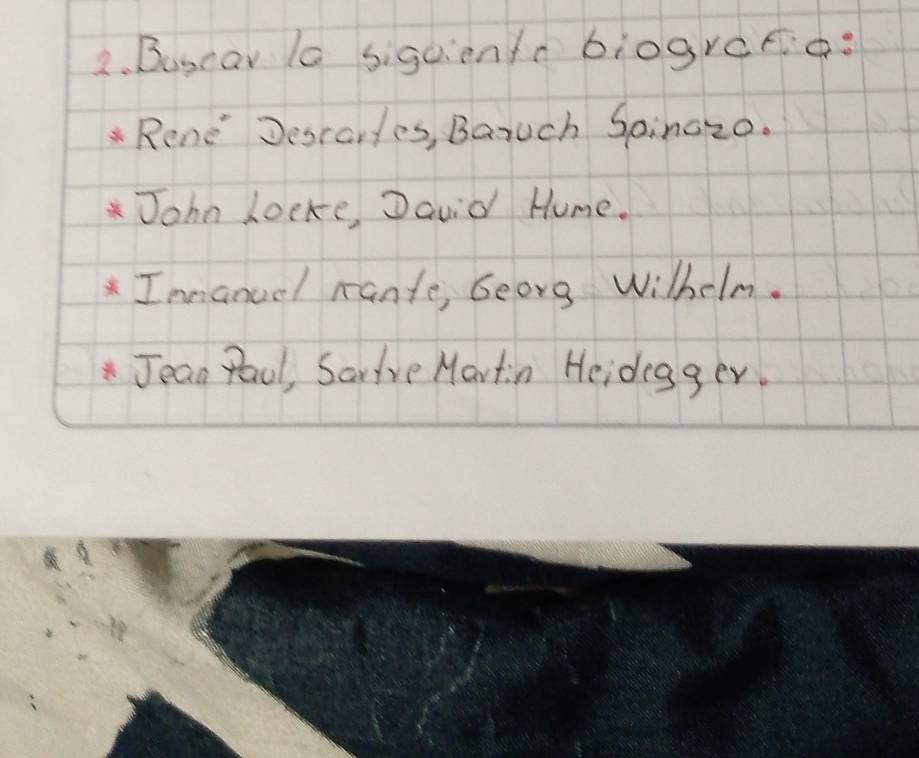 2. Buscar la siguiente biografia:
* René Descartes, Baruch Spinozo.
* John Locke, David Hume.
* Inmanuel kante, Georg Wilhelm.
* Jean Paul, Sartre Martin Heidegger.